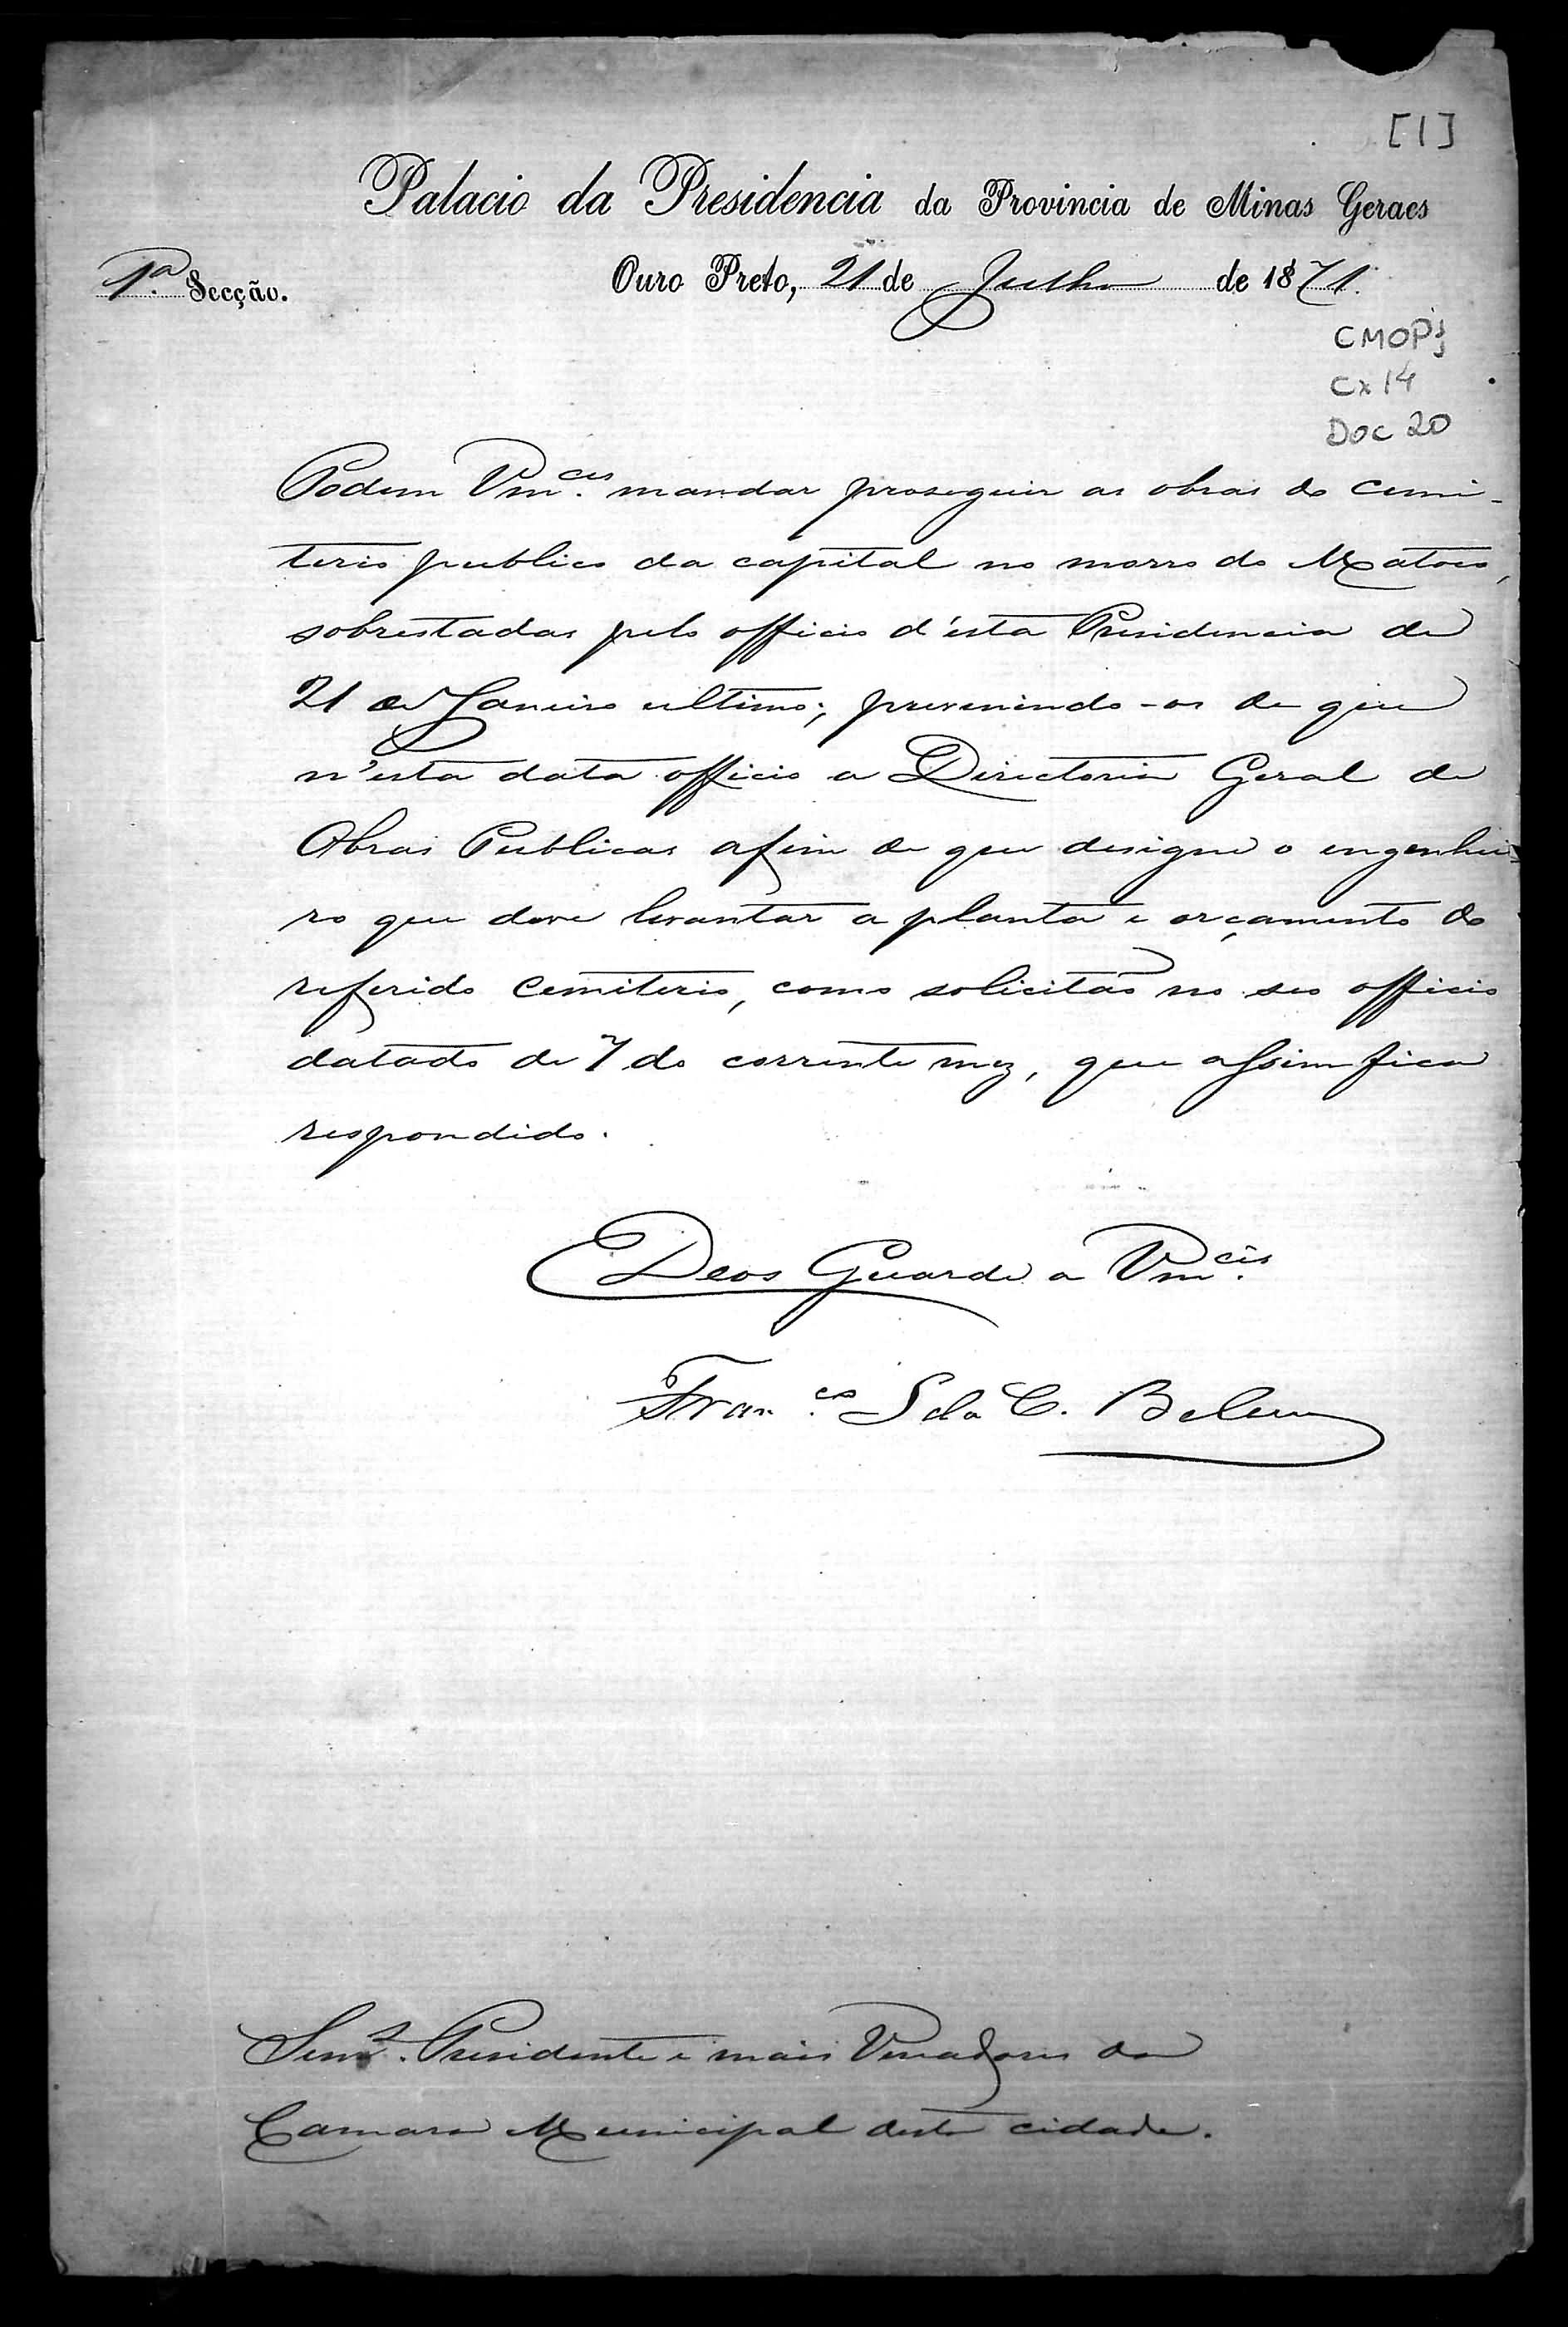 [1]
Palacio da Presidencia da Provincia de Minas Geraes
1.ª Secção.
Ouro Preto, 21 de Julho de 1871.
CMOP
Cx 14
Doc 20
Podem Vm.ces mandar proseguir as obras do cemi-
terio publico da capital no morro do
sobrestadas pelo officio d'esta Presidencia de
21 de Janeiro ultimo; prevenindo-os de que
n'esta data officio a Directoria Geral de
Obras Publicas afim de que designe o engenhei-
ro que deve levantar a planta e orçamento do
referido cemiterio, como solicitão no seo officio
datado de 7 do corrente mez, que assim fica
respondido.
Deos Guarde a Vm.ces
Fran.co S da C. Belem
Senr.s Presidente e mais Vereadores da
Camara Municipal desta cidade.